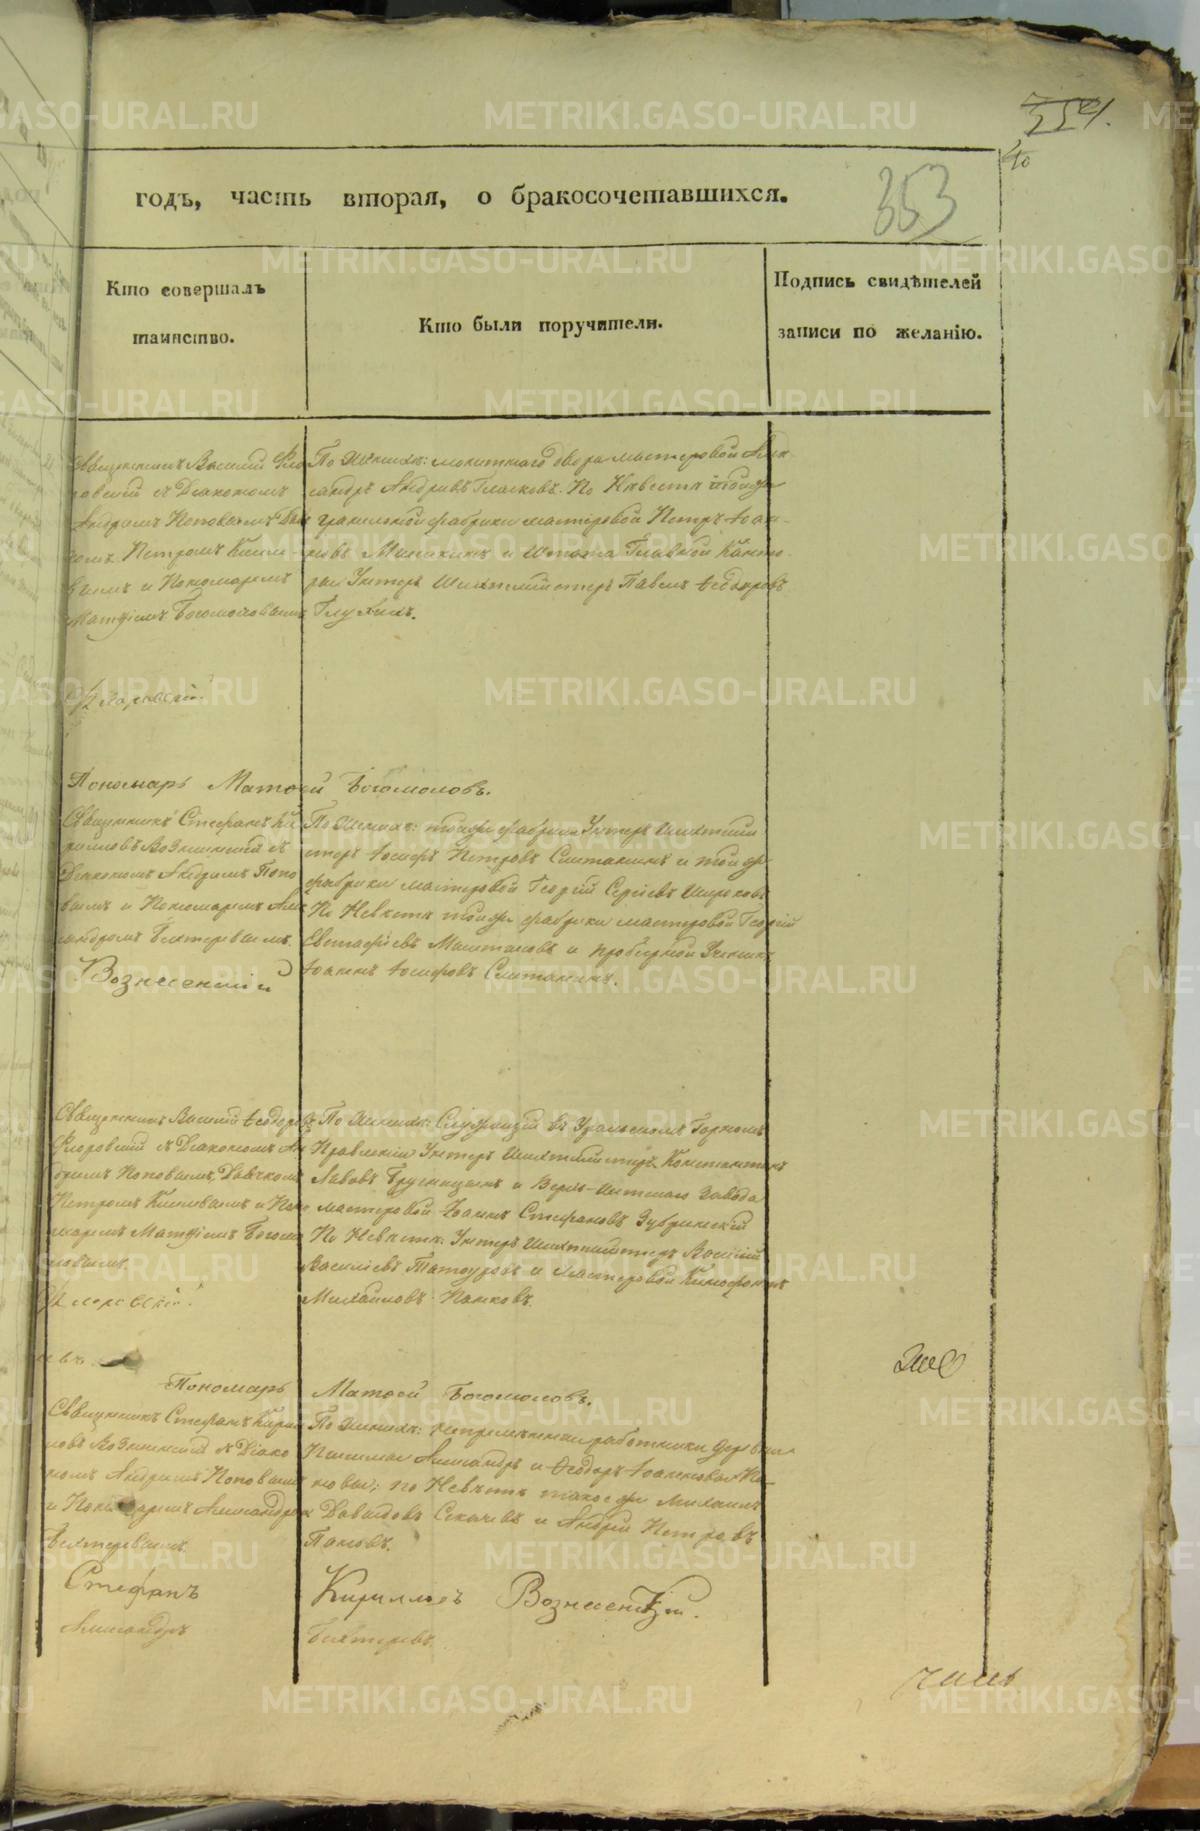 354.
353
годъ, часть вторая, о бракосочетавшихся.
Кто совершалъ
таинство.
Кто были поручители.
Подпись свидѣтелей
записи по желанію.
Священникъ Василій Фло
ровскій съ Діакономъ
Андреемъ Поповымъ
Петромъ
и Пономаремъ
Матфіемъ Богомоловымъ
По Женихѣ: монетнаго двора мастеровой Алек
сандръ Андріевъ Гласковъ. По Невѣстѣ тойже
гранильной фабрики мастеровой Петръ Іоан-
новъ и Штата Главной Канто
ры Унтеръ Шихтмейстеръ Павелъ Ѳеодоровъ
Глухихъ.
Флоровскій
Пономарь Матѳей Богомоловъ.
Священникъ Стефанъ Ки
рилловъ Вознесенскій съ
Діакономъ Андреемъ Попо
вымъ и Пономаремъ Алек
сандромъ Бехтеревымъ.
Вознесенскій
По Женихѣ: тойже фабрики Унтеръ Шихтмей
стеръ Іосифъ Петровъ Сметанинъ и тойже
фабрики мастеровой Георгій Сергіевъ Широковъ
По Невѣстѣ тойже фабрики мастеровой Георгій
Евстафіевъ и пробирной Ученикъ
Іоаннъ Іосифовъ Сметанинъ.
Священникъ Василій Ѳеодоровъ
Флоровскій съ Діакономъ Ан
дреемъ Поповымъ, Дьячкомъ
Петромъ и Поно
маремъ Матфіемъ Богомо
ловымъ.
Флоровскій
По Женихѣ: Служащій въ Уральскомъ Горномъ
Правленіи Унтеръ Шихтмейстеръ Константинъ
Львовъ и Верхъ-Исетскаго Завода
мастеровой Іоаннъ Стефановъ Зубринскій
По Невѣстѣ: Унтеръ Шихтмейстеръ Василій
Василіевъ Татауровъ и мастеровой Ксенофонтъ
Михайловъ Панковъ.
Пономарь Матѳей Богомоловъ.
Священникъ Стефанъ Кирил
ловъ Вознесенскій съ Діако
номъ Андреемъ Поповымъ
и Пономаремъ Александромъ
Бехтеревымъ.
По Женихѣ: непремѣнные работники деревни
Александръ и Ѳеодоръ Іоанновы Па
новы; по Невѣстѣ такоже Михаилъ
Давыдовъ и Андрей Петровъ
Пановъ.
Стефанъ Кирилловъ Вознесенскій.
Александръ Бехтеревъ.
METRIKI.GASO-URAL.RU